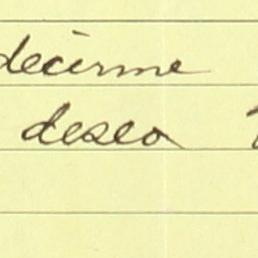 decirme
deseo